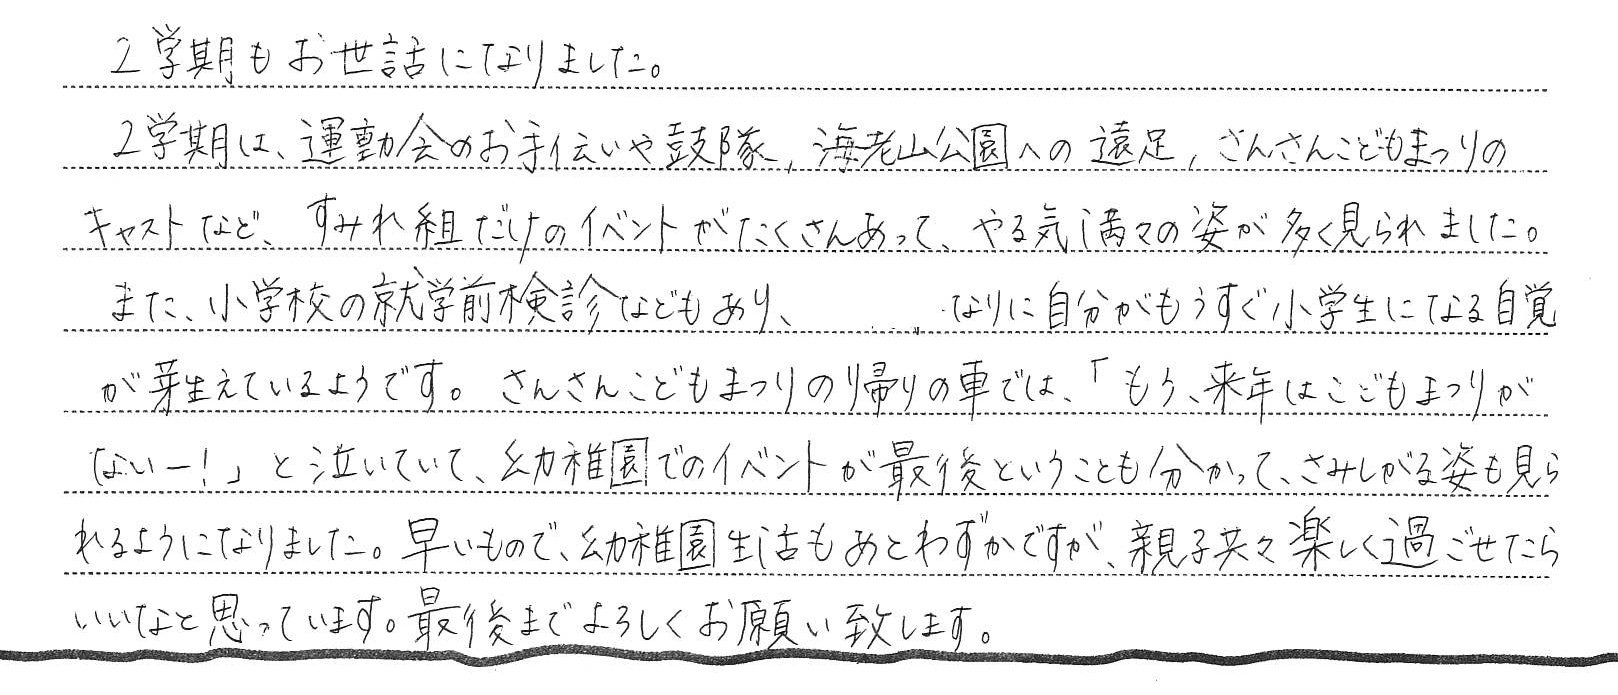 2学期もお世話になりました。
2学期は、運動会のお手伝いや鼓隊,海老山公園への遠足,さんさんこどもまつりの
キャストなど、すみれ組だけのイベントがたくさんあって、やる気満々の姿が多く見られました。
また、小学校の就学前検診などもあり、 なりに自分がもうすぐ小学生になる自覚
が芽生えているようです。さんさんこどもまつりの帰りの車では、「もう、来年はこどもまつりが
ないー!」と泣いていて、幼稚園でのイベントが最後ということも分かって、さみしがる姿も見ら
れるようになりました。早いもので、幼稚園生活もあとわずかですが、親子共々楽しく過ごせたら
いいなと思っています。最後までよろしくお願い致します。